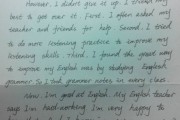 However, I didn't give it up. I tried my
best to get over it. First, I often asked my
teacher and friends for help. Second, I tried
to do more listening practice to improve my
listening skills. Third, I found the great way
to improve my English was by studying English
grammar. So I took grammar notes in every class.
Now, I'm good at English. My English teacher
says I'm hard-working. I'm very happy to